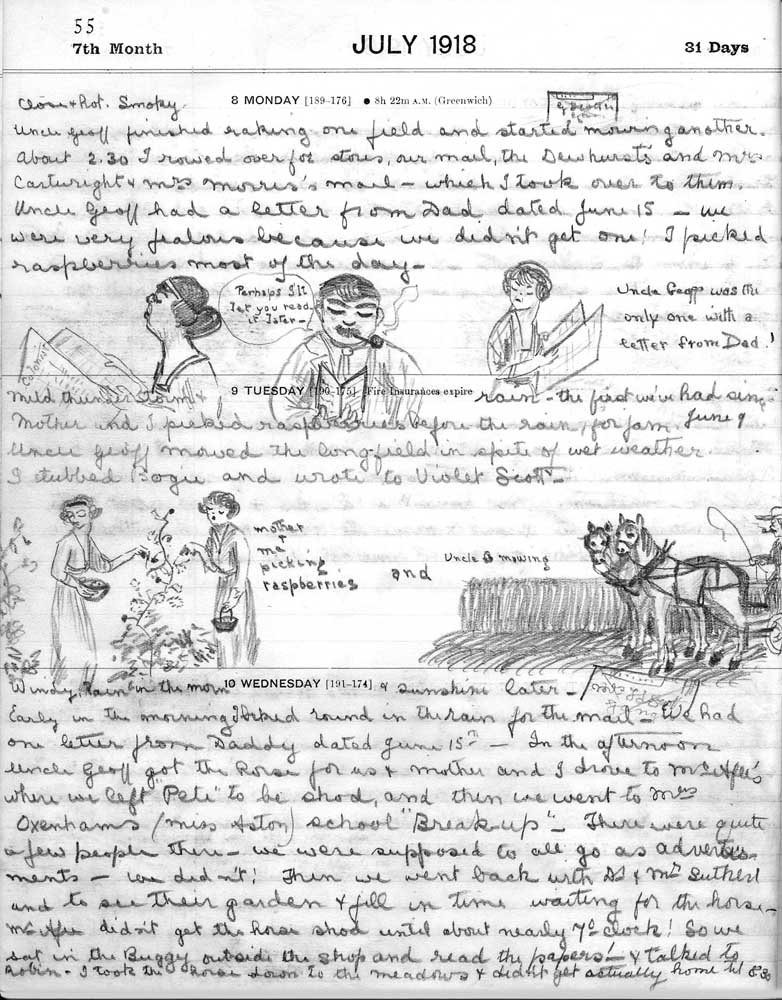 55
7th Month JULY 1918 31 Days
Close & Hot. Smoky. 8 MONDAY [189-176] ● 8h 22m A.M. (Greenwich)
Uncle Geoff finished raking one field and started mowing another.
About 2.30 I rowed over for stores, our mail, the Dewhurst's and Mrs
Cartwright & Mrs Morris's mail – which I took over to them.
Uncle Geoff had a letter from Dad dated June 15 – we
were very jealous because we didn't get one! I picked
raspberries most of the day –
Perhaps I'll
let you read
it later –
Uncle Geoff was the
only one with a
letter from Dad!
Colonist
9 TUESDAY [190-175] Fire Insurances expire
Mild thunderstorm & rain – the first we've had since
June 9
Mother and I picked raspberries before the rain, for jam.
Uncle Geoff mowed the long field in spite of wet weather.
I tubbed Bogie and wrote to Violet Scott –
mother
+
me
picking
raspberries
and
Uncle G mowing
10 WEDNESDAY [191-174]
Windy, Rain in the morn & sunshine later –
Early in the morning I biked round in the rain for the mail – We had
one letter from Daddy dated June 15th – In the afternoon
Uncle Geoff got the horse for us & mother and I drove to McAfee's
where we left "Pete" to be shod, and then we went to Mrs
Oxenhams (Miss Aston) school "Break up" – There were quite
a few people there – we were supposed to all go as advertise-
ments – we didn't! Then we went back with Dr & Mrs
and to see their garden & fill in time waiting for the horse –
McAfee didn't get the horse shod until about nearly 7 o'clock! So we
sat in the Buggy outside the shop and read the papers! – & talked to
Robin – I took the horse down to the meadows & didn't get actually home til 8.30